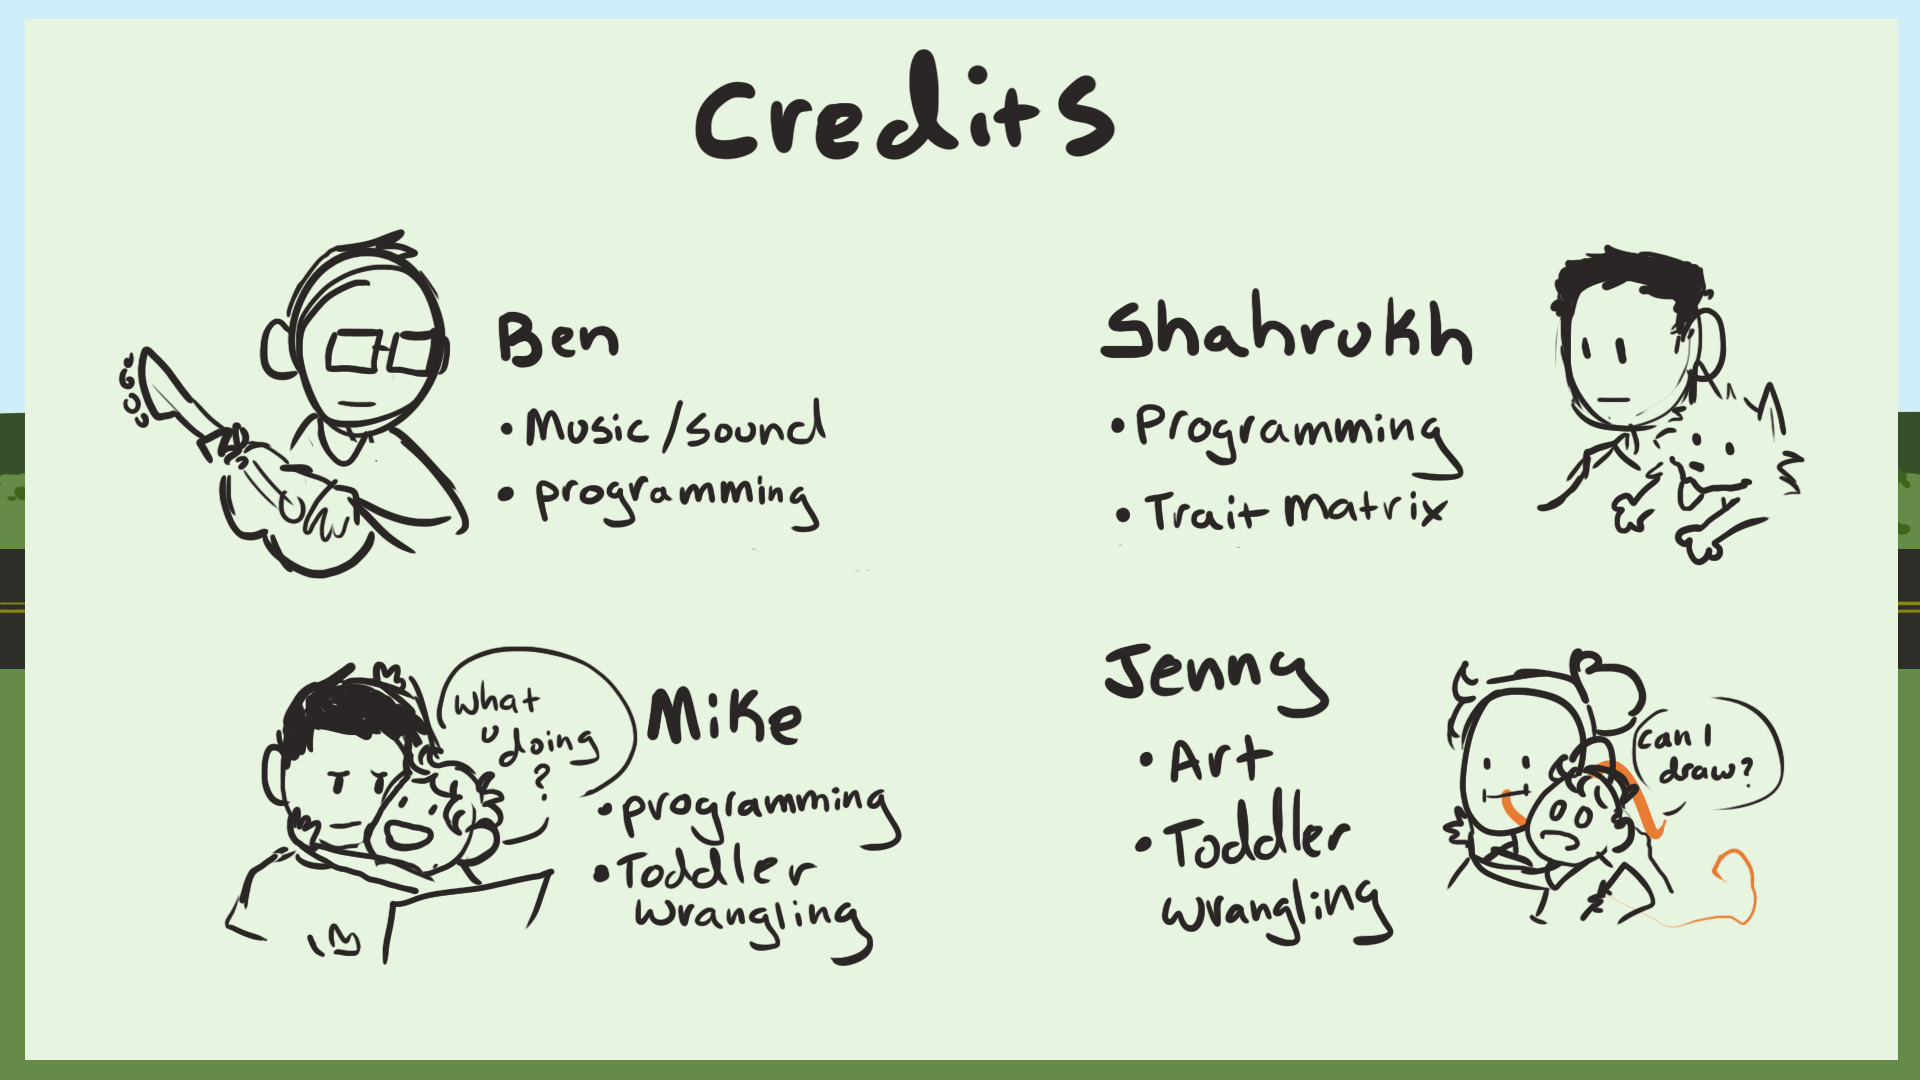 Credits
Ben
• Music/sound
• programming
Shahrukh
• Programming
• Trait Matrix
what
u doing
?
Mike
• programming
• Toddler
wrangling
Jenny
• Art
• Toddler
wrangling
can I
draw?